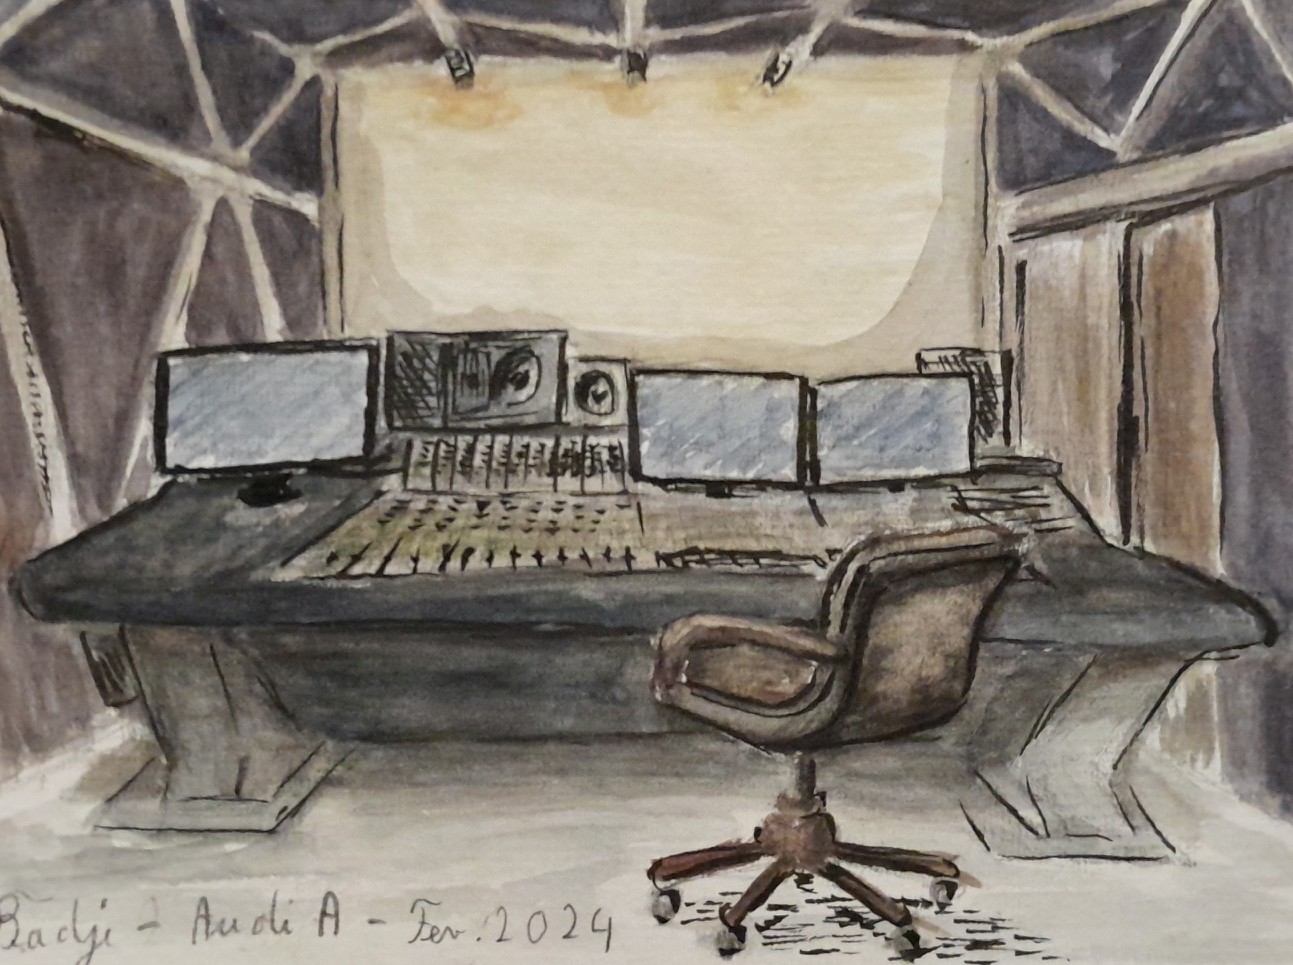 Badji - Audi A - Fev. 2024